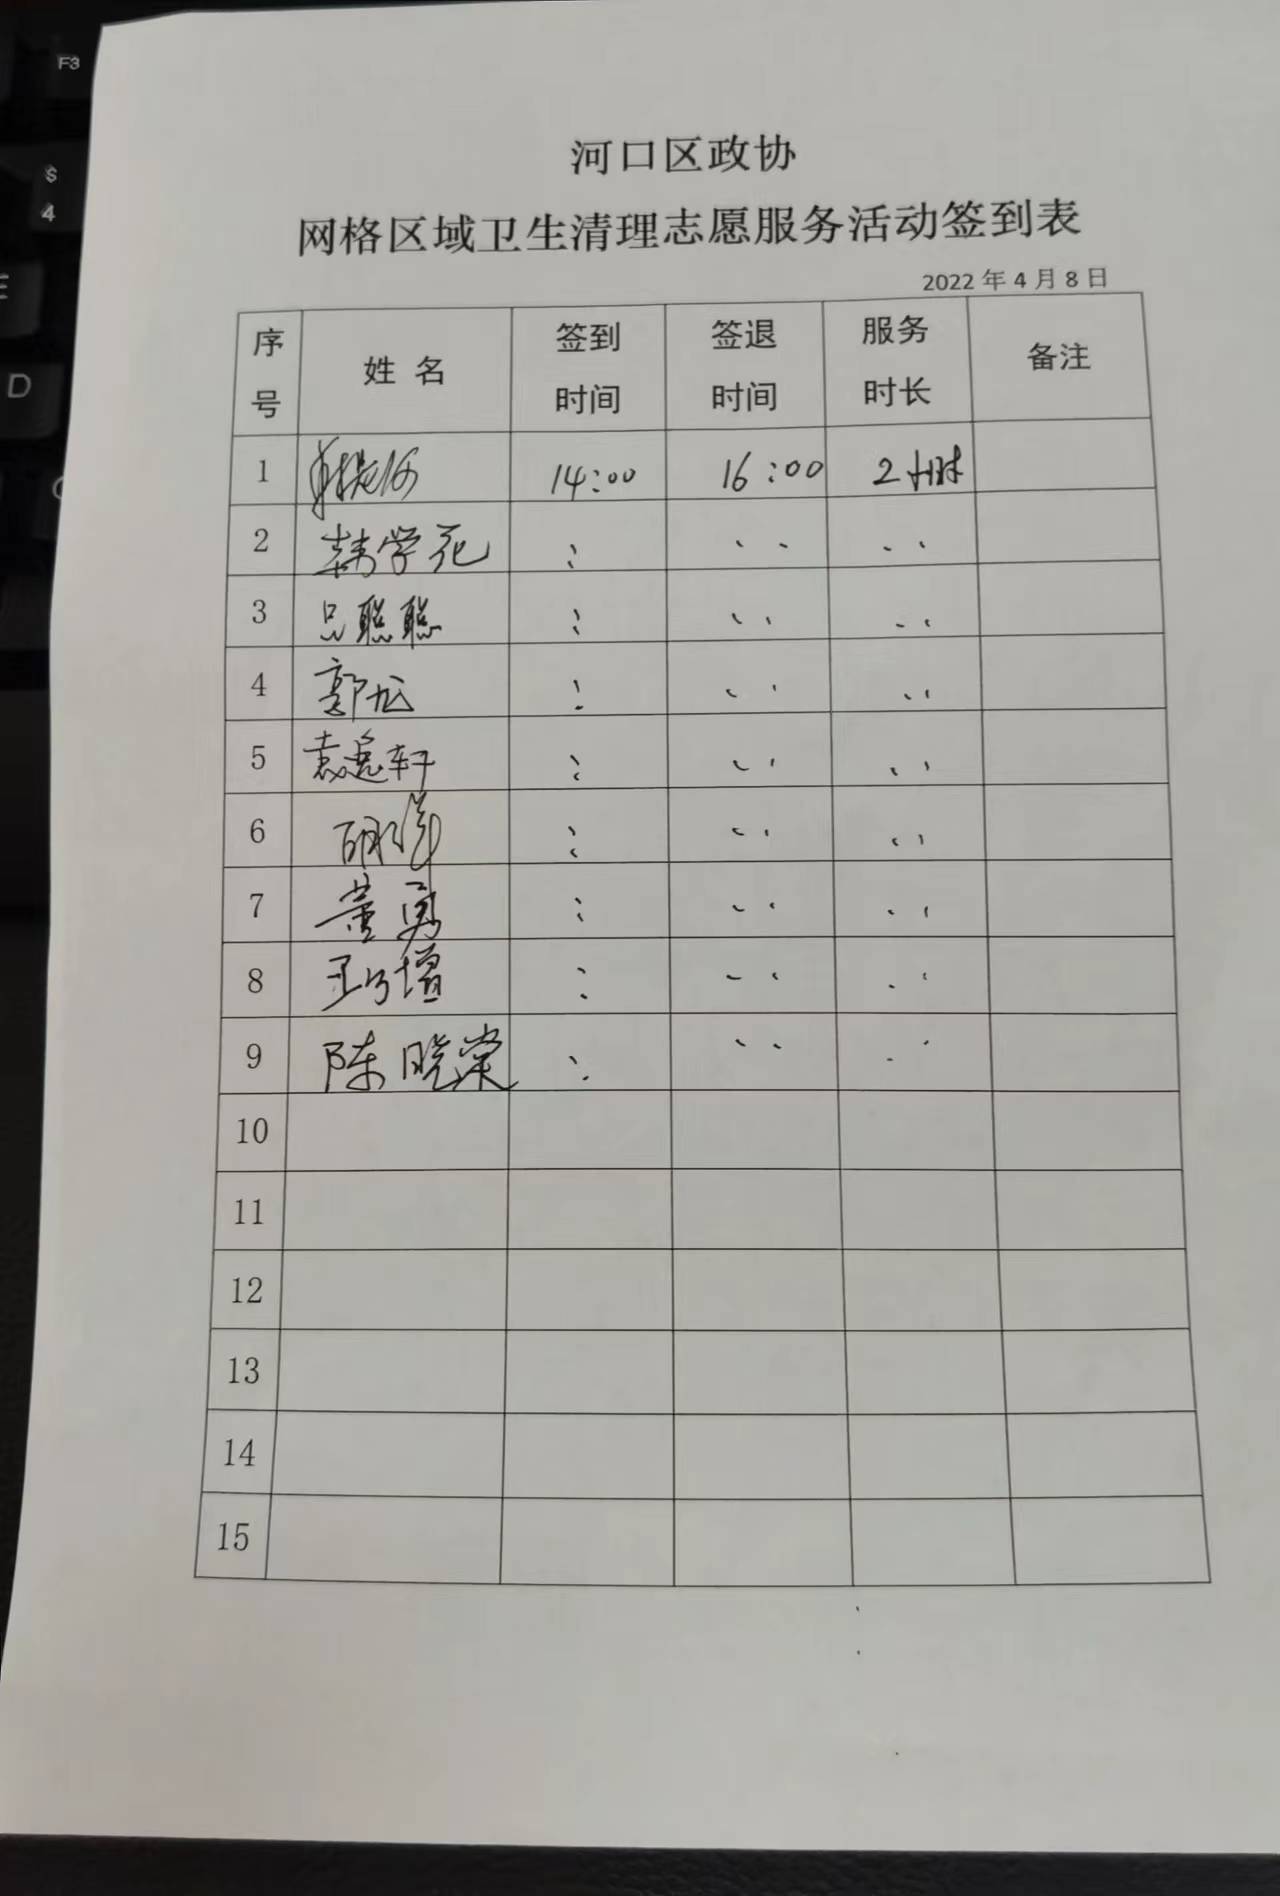 河口区政协
网格区域卫生清理志愿服务活动签到表
2022年4月8日
序号 姓 名 签到时间 签退时间 服务时长 备注
1 14:00 16:00 2小时
2 韩学花
3 吕聪聪
4 郭龙
5 袁逸轩
6
7 董勇
8 增
9 陈晓棠
10
11
12
13
14
15
F3
$
4
E
D